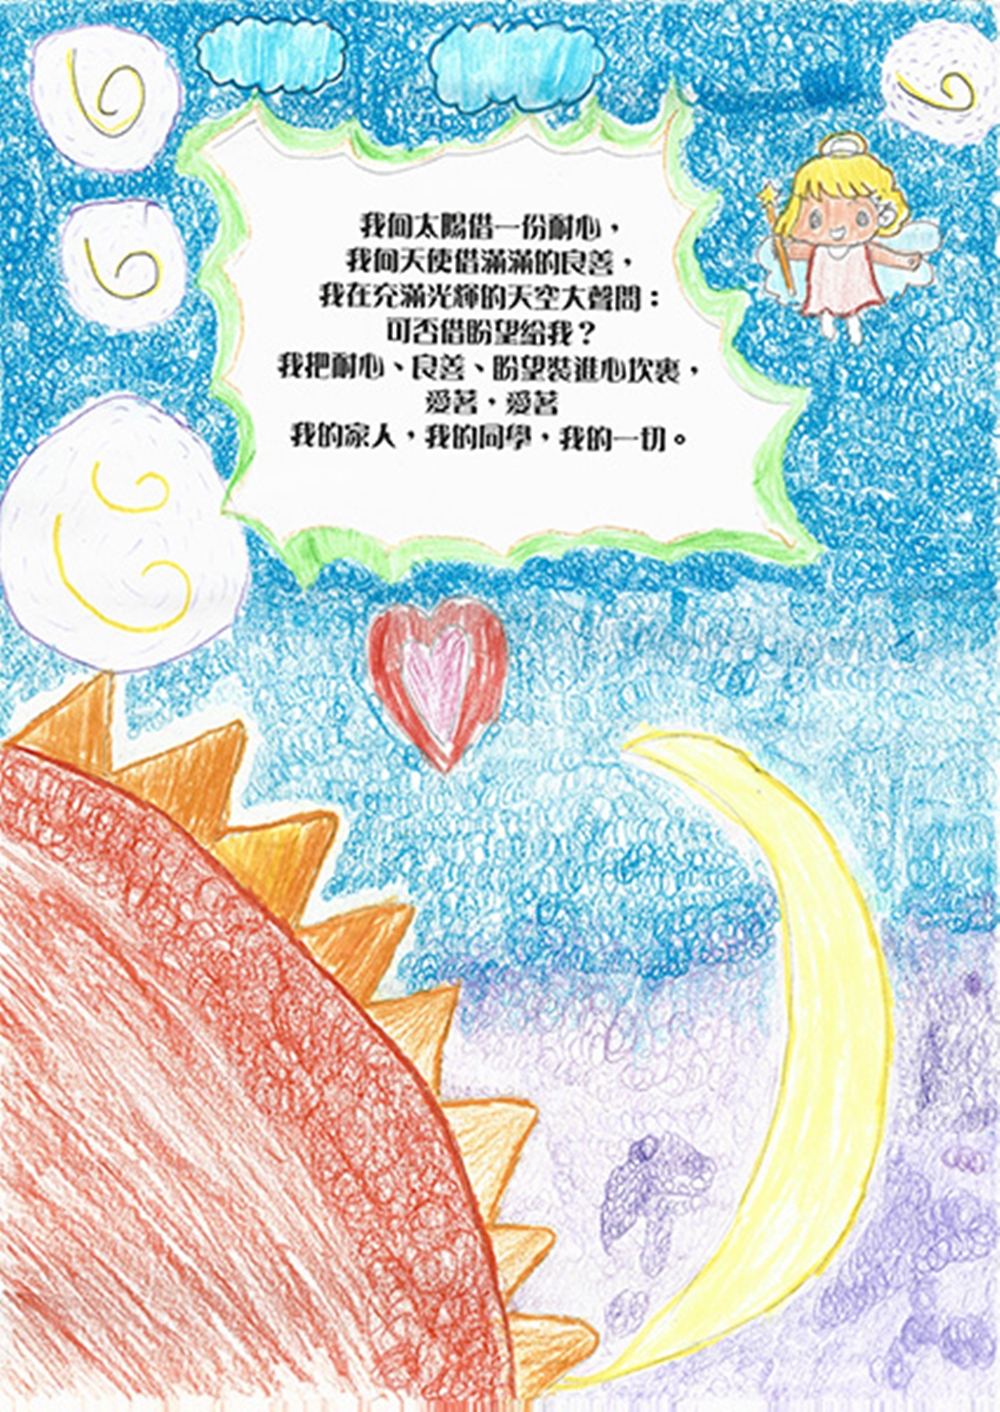 我向太陽借一份耐心，
我向天使借滿滿的良善，
我在充滿光輝的天空大聲問：
可否借盼望給我？
我把耐心、良善、盼望裝進心坎裏，
愛著，愛著
我的家人，我的同學，我的一切。